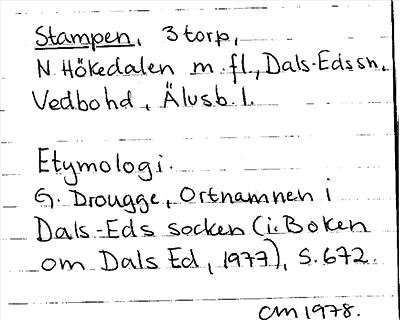 Stampen, 3 torp,
N Hökedalen m. fl., Dals-Eds sn.
Vedbo hd, Älvsb. l.
Etymologi.
G. Drougge, Ortnamnen i
Dals-Eds socken (i: Boken
om Dals Ed, 1977), s. 672.
CM 1978.